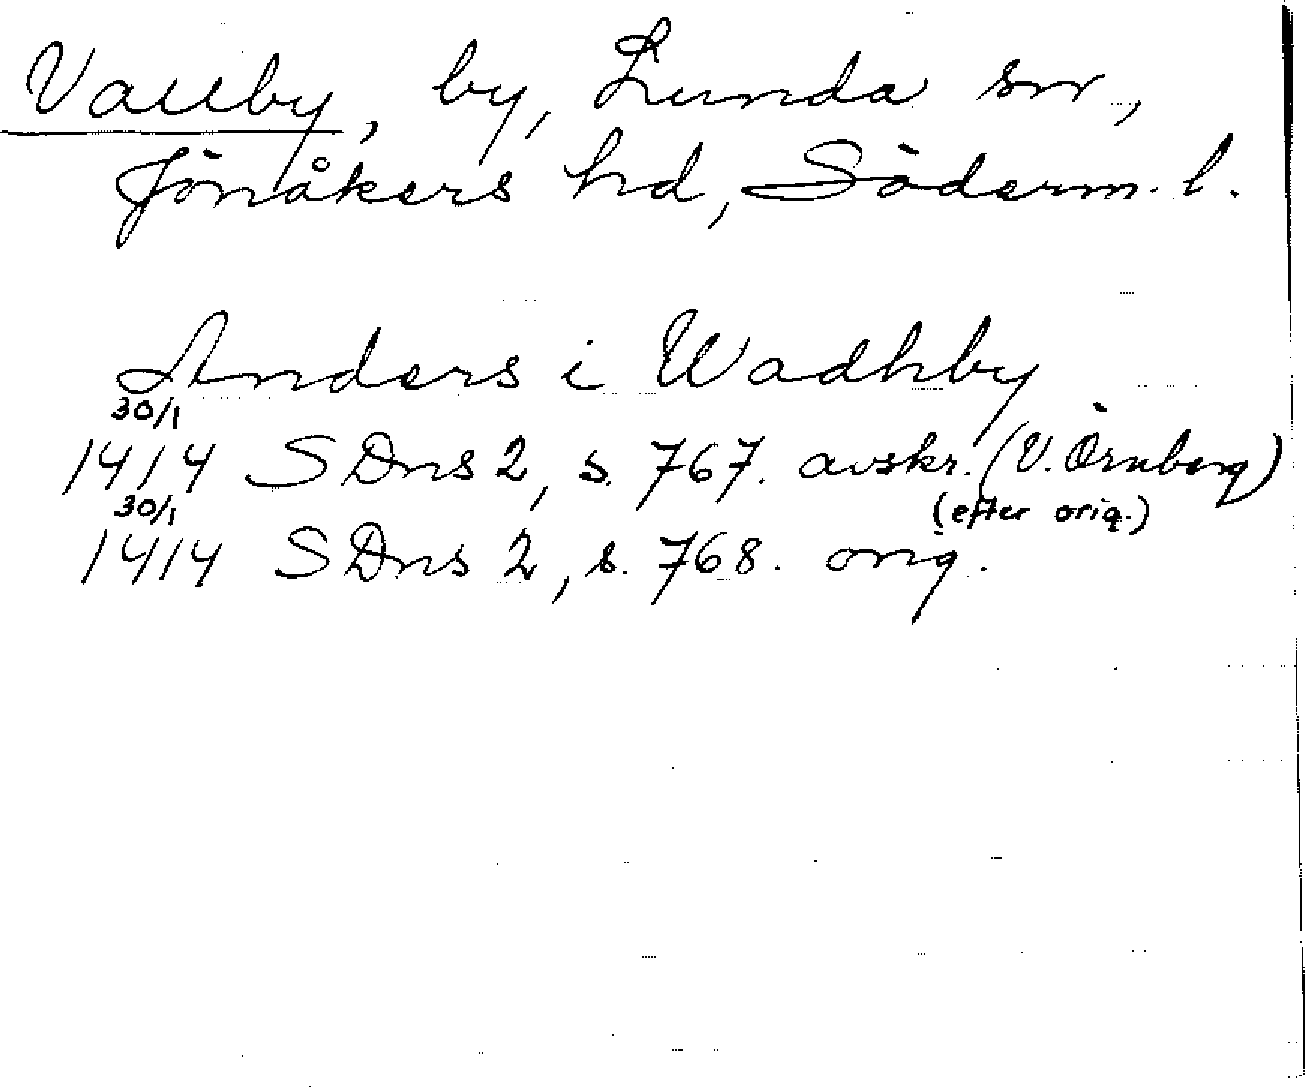 Vallby, by, Lunda sn,
Jönåkers hd, Söderm. l.
Anders i Wadhby
30/1
1414 SDns 2, s. 767. avskr. (V. Örnberg)
(efter orig.)
30/1
1414 SDns 2, s. 768. orig.